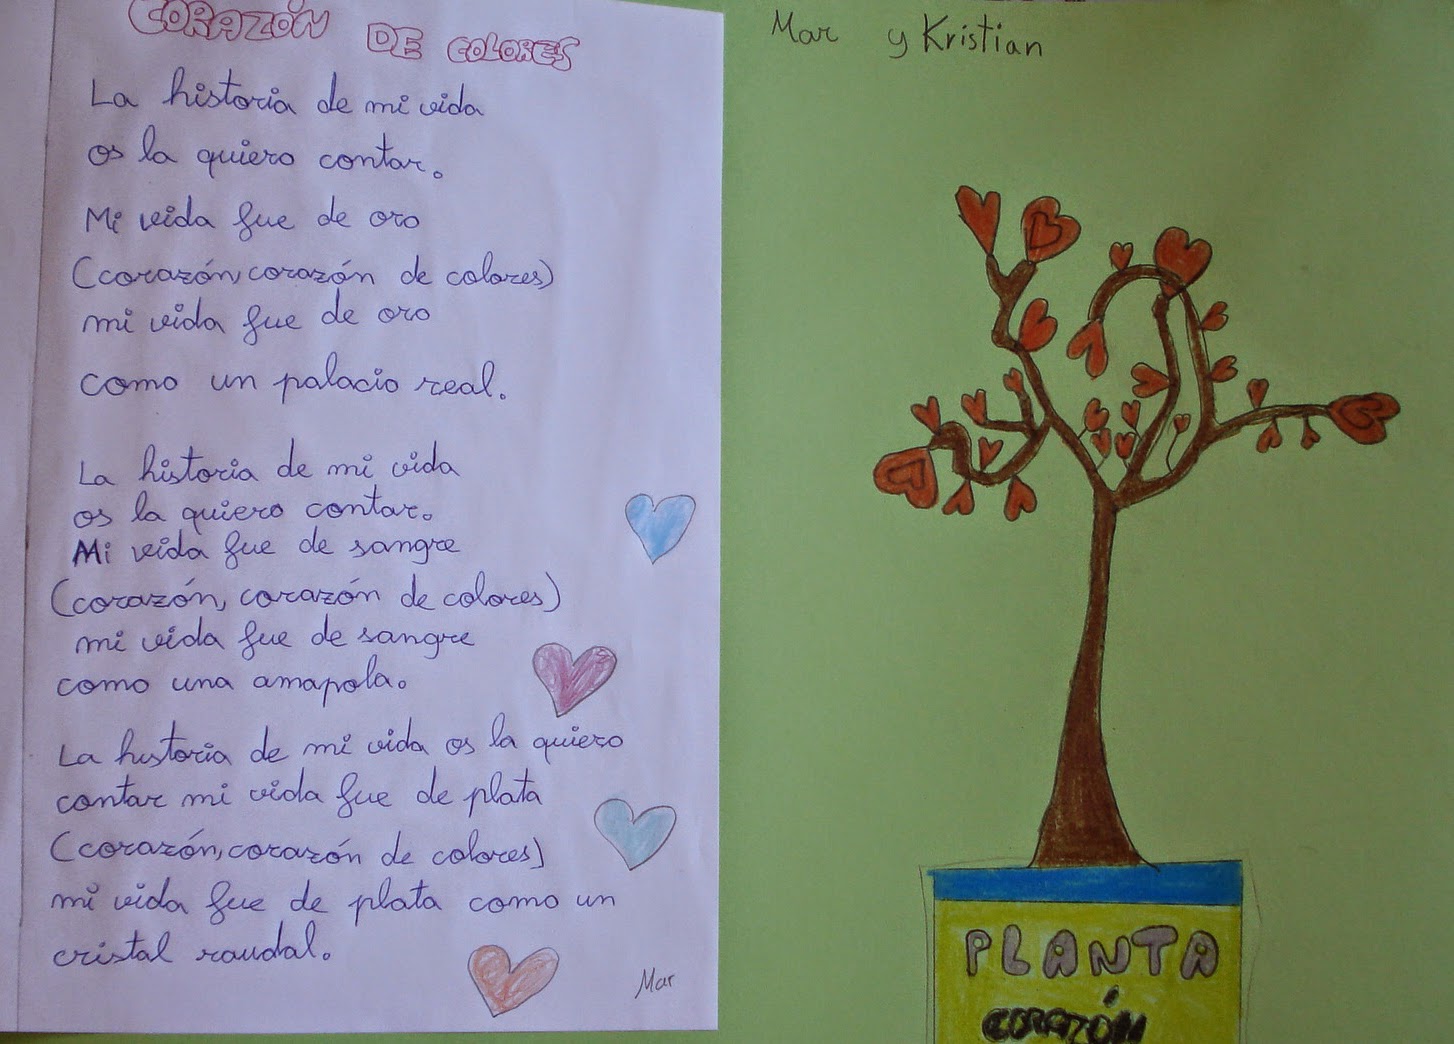 CORAZÓN DE COLORES
La historia de mi vida
os la quiero contar.
Mi vida fue de oro
(corazón, corazón de colores)
mi vida fue de oro
como un palacio real.
La historia de mi vida
os la quiero contar.
Mi vida fue de sangre
(corazón, corazón de colores)
mi vida fue de sangre
como una amapola.
La historia de mi vida os la quiero
contar mi vida fue de plata
(corazón, corazón de colores)
mi vida fue de plata como un
cristal raudal.
Mar
Mar y Kristian
PLANTA
CORAZÓN